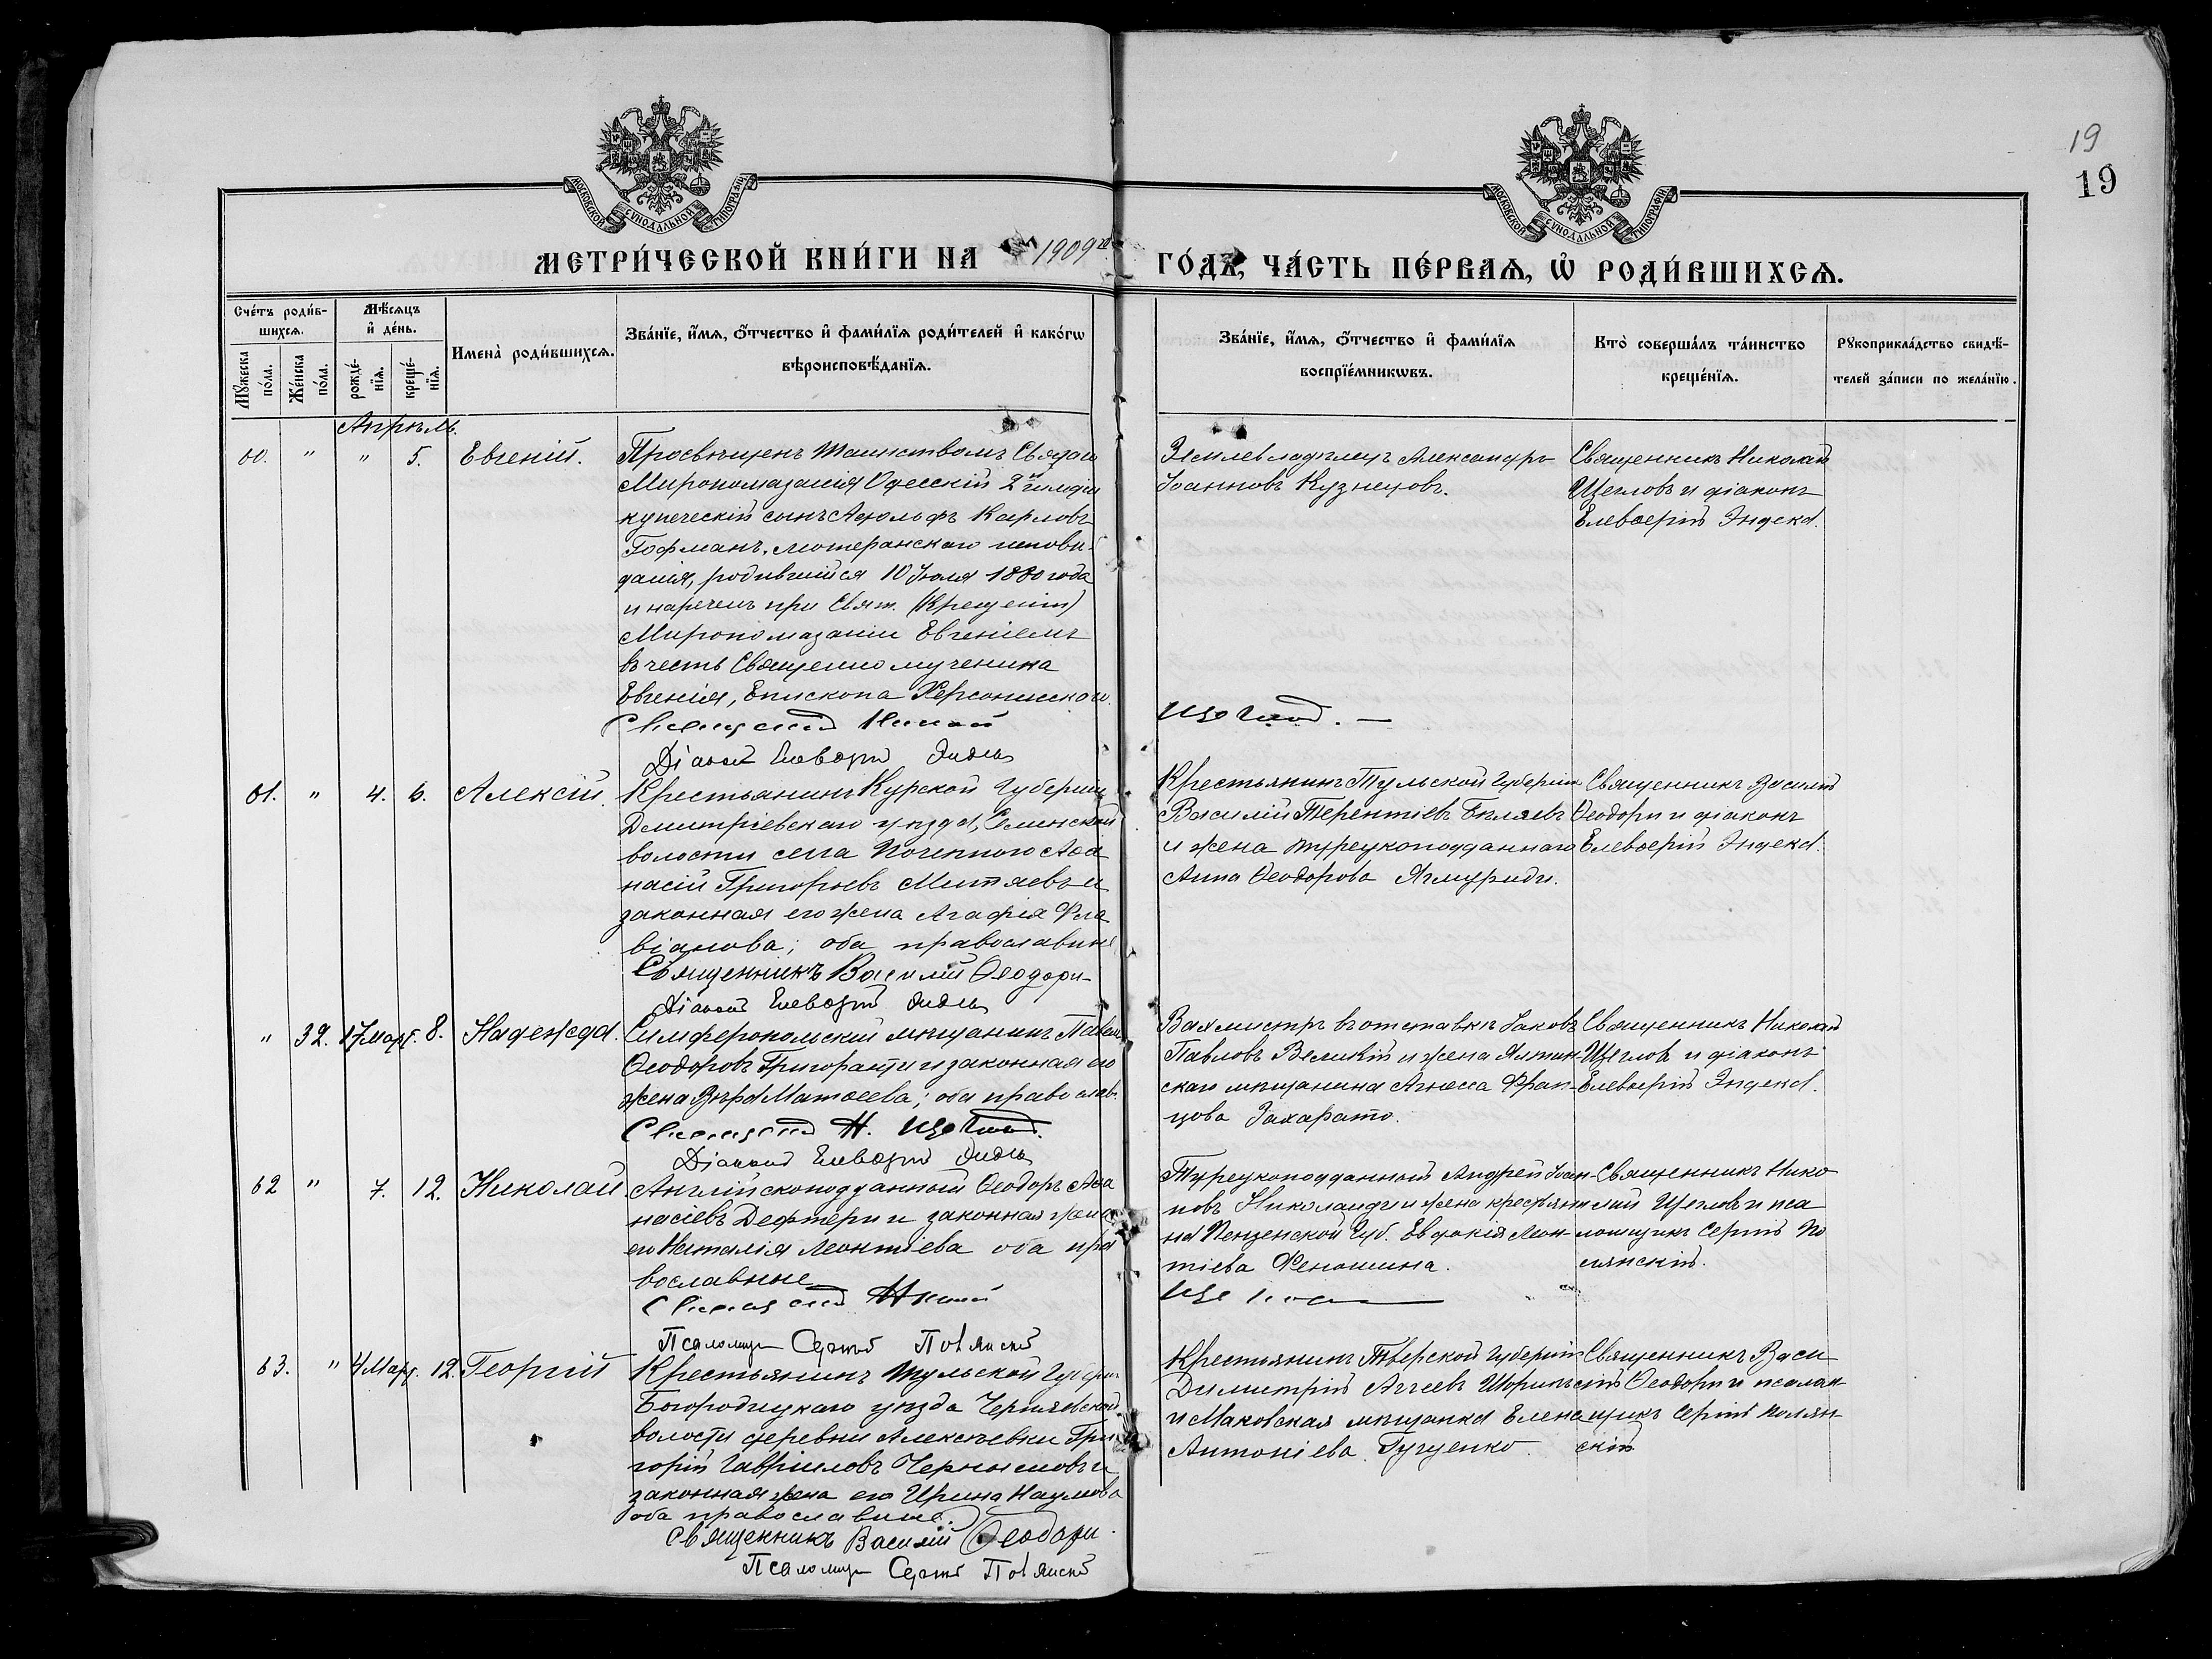 19
19
МОСКОВСКОЙ СУНОДАЛЬНОЙ ТИПОГРАФІИ
МОСКОВСКОЙ СУНОДАЛЬНОЙ ТИПОГРАФІИ
МЕТРИ́ЧЕСКОЙ КНИ́ГИ НА 1909й
ГО́ДЪ, ЧА́СТЬ ПЕ́РВАѦ, Ѡ҆ РОДИ́ВШИХСѦ.
Сче́тъ роди́в-
шихсѧ.
Мѣ́сѧцъ
и҆ де́нь.
Мꙋ́жеска
по́ла.
Же́нска
по́ла.
рожде́-
нїѧ.
креще́-
нїѧ.
Имена̀ роди́вшихсѧ.
Зва́нїе, и҆́мѧ, ѻ҆́тчество и҆ фами́лїѧ роди́телей и҆ како́гѡ
вѣроисповѣ́данїѧ.
Зва́нїе, и҆́мѧ, ѻ҆́тчество и҆ фами́лїѧ
воспрїе́мникѡвъ.
Кто̀ соверша́лъ та́инство
креще́нїѧ.
Рꙋкоприкла́дство свидѣ́-
телей за́писи по жела́нїю.
Апрѣль.
60. " " 5. Евгеній.
Просвѣщенъ Таинствомъ Святаго
Миропомазанія Одесскій 2й гильдіи
купеческій сынъ Адольфъ Карловъ
Гофманъ, лютеранскаго исповѣ-
данія, родившійся 10 Іюля 1880 года
и нареченъ при Свят. (Крещеніи)
Миропомазаніи Евгеніемъ
въ честь Священномученика
Евгенія, Епископа Херсонискаго.
Священникъ Николай
Діаконъ Елевѳерій Эндека
Землевладѣлецъ Александръ
Іоанновъ Кузнецовъ.
Щегловъ. —
Священникъ Николай
Щегловъ и діаконъ
Елевѳерій Эндека.
61. " 4. 6. Алексій.
Крестьянинъ Курской Губерніи
Дмитріевскаго уѣзда,
волости села Почепного Аѳа
насій Григорьевъ Митяевъ и
законная его жена Агафія Фла
віанова; оба православные
Священникъ Василій Ѳеодори
Діаконъ Елевѳерій Эндека
Крестьянинъ Тульской Губерніи
Василій Терентіевъ Бѣляевъ
и жена турецкоподданнаго
Анна Ѳеодорова Ягмуриди.
Священникъ Василій
Ѳеодори и діаконъ
Елевѳерій Эндека.
" 32. 17 Март. 8. Надежда.
Симферопольскій мѣщанинъ Павелъ
Ѳеодоровъ Григораци и законная его
жена Вѣра Матѳеева; оба православ.
Священникъ Н. Щегловъ.
Діаконъ Елевѳерій Эндека
Вахмистръ въ отставкѣ Іаковъ
Павловъ Великій и жена Ялтин-
скаго мѣщанина Агнесса Фран-
цова Захарато.
Священникъ Николай
Щегловъ и діаконъ
Елевѳерій Эндека.
62 " 7. 12. Николай.
Англійскоподданный Ѳеодоръ Аѳа
насіевъ Дефтери и законная жена
его Наталія Леонтіева оба пра
вославные
Священникъ Николай
Псаломщ. Сергій Полянскій
Турецкоподданный Андрей Іоан-
новъ Николаиди и жена крестьяни
на Пензенской Губ. Евдокія Леон-
тіева Феношина.
Щегловъ
Священникъ Нико
лай Щегловъ и пса
ломщикъ Сергій По
лянскій.
63. " 4 Март. 12. Георгій
Крестьянинъ Тульской Губерніи
Богородицкаго уѣзда
волости деревни Алексѣевки Гри
горій Гавріиловъ Чернышовъ и
законная жена его Ирина Наумова
оба православные.
Священникъ Василій Ѳеодори.
Псаломщ. Сергій Полянскій
Крестьянинъ Тверской Губерніи
Димитрій Аггеевъ
и Маковская мѣщанка Елена
Антоніева
Священникъ Васи
лій Ѳеодори и псалом-
щикъ Сергій Полян-
скій